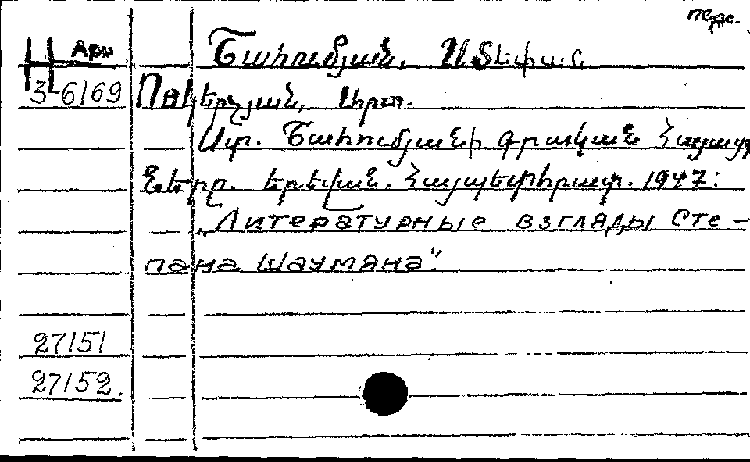 Арм Շահումյան, Ստեփան.
3-6169 Պողերչյան, Սիրո.
Ստ. Շահումյանի գրական հայացք
ները. Երևան. Հայպետհրատ. 1947:
„Литературные взгляды Сте-
пана Шаумяна".
27151
27152.